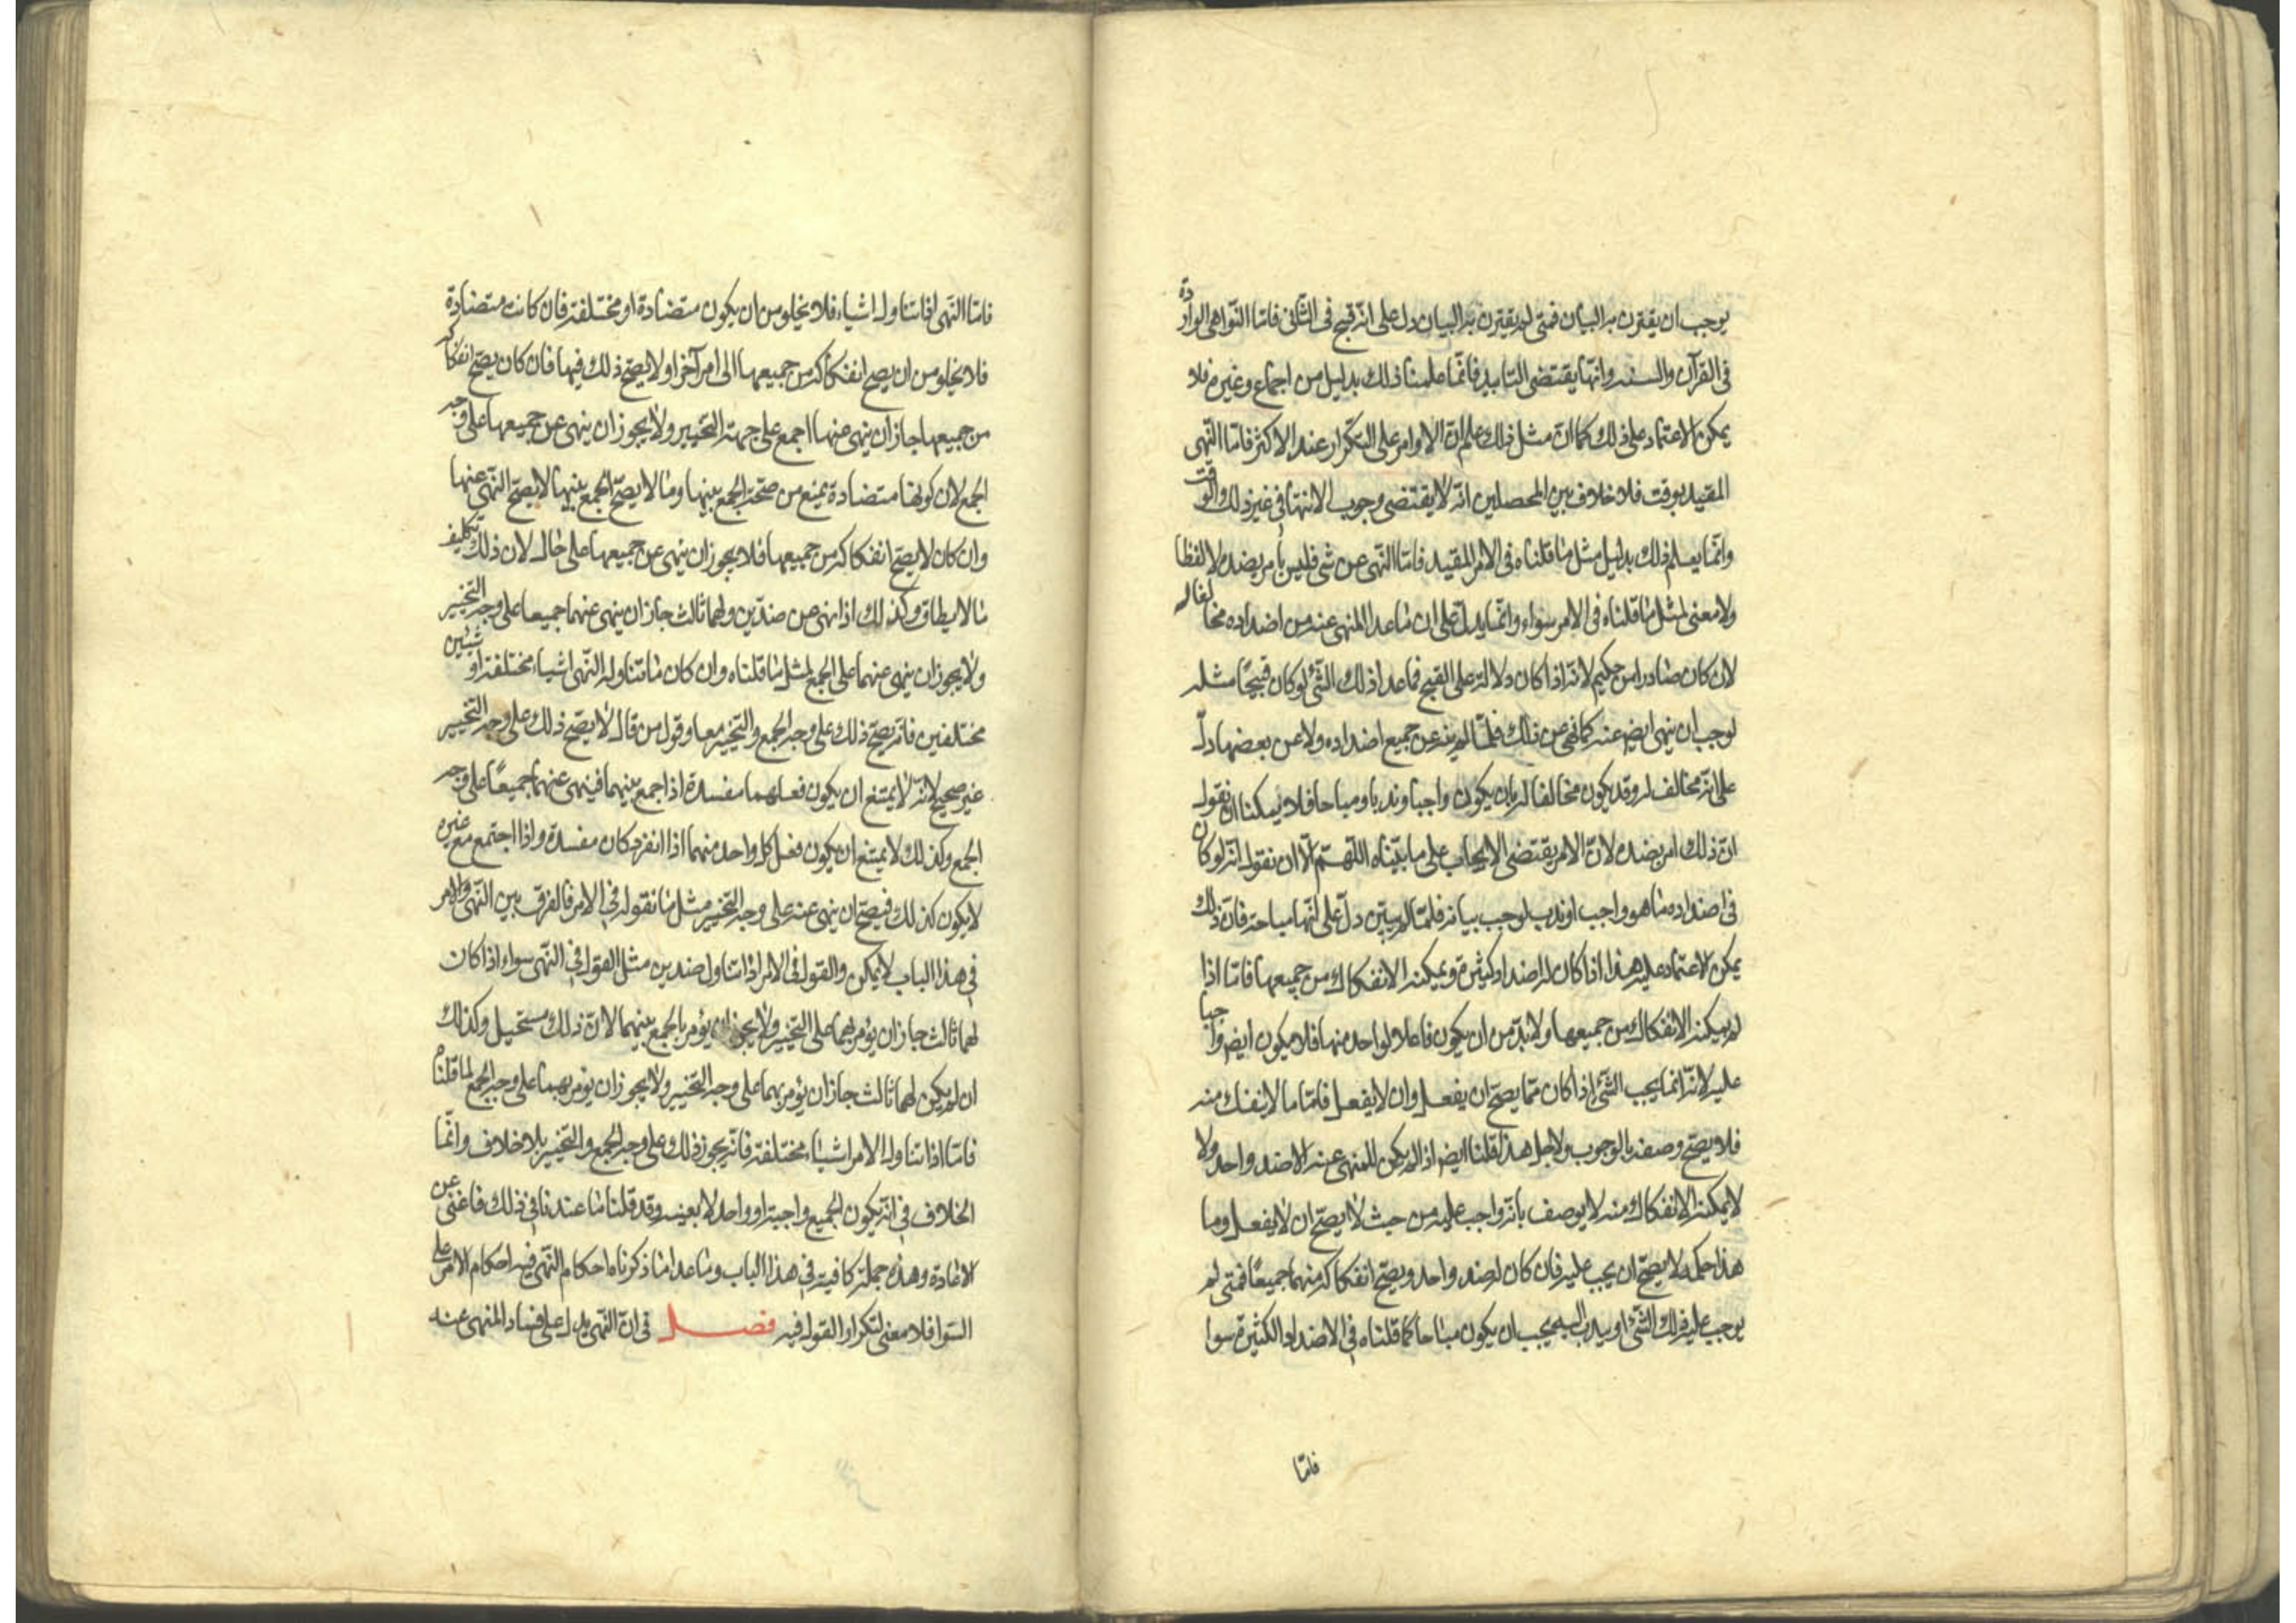 يوجب ان يقترن به البيان فمتى لم يقترن به البيان دل على انّه قبح فى الثّانى فامّا النّواهى الواردة
فى القرآن والسنّه وانّها يقتضى التابيد فانّما علمنا ذلك بدليل من اجماع وغيره فلا
يمكن الاعتماد على ذلك كما انّ مثل ذلك علم انّ الاوامر على التكرار عند الاكثر فامّا النّهى
المقيد بوقت فلا خلاف بين المحصلين انّه لا يقتضى وجوب الانتهاء فى غير ذلك الوقت
وانّما يعلم ذلك بدليل مثل ما قلناه فى الامر المقيد فامّا النّهى عن شئ فليس بأمر بضده لا لفظا
ولا معنى لمثل ما قلناه فى الامر سواء وانّما يدلّ على ان ما عدا المنهى عنه من اضداده مخالفا له
لان كان صادرا من حكيم لانّه اذا كان دلالة على القبح فما عدا ذلك الشّئ لو كان قبيحًا مثله
لوجب ان ينهى ايضم عنه كما نهى عن ذلك فلمّا لم ينه عن جميع اضداده ولا عن بعضها دلّ
على انّه مخالف له وقد يكون مخالفا له بان يكون واجبا وندبا ومباحا فلا يمكننا ان نقول
انّ ذلك امر بضده لانّ الامر يقتضى الايجاب على ما بيّناه اللّهمّ الّا ان نقول انّه لو كان
فى اضداده ما هو واجب او ندب لوجب بيانه فلمّا لم يبيّن دلّ على انّها مباحة فانّ ذلك
يمكن الاعتماد عليه هذا اذا كان له اضداد كثيرة ويمكنه الانفكاك من جميعها فامّا اذا
لم يمكنه الانفكاك من جميعها ولا بدّ من ان يكون فاعلا لواحد منها فلا يكون ايضم واجبا
عليه لانّه انّما يجب الشّئ اذا كان ممّا يصحّ ان يفعل وان لا يفعل فامّا ما لا ينفك منه
فلا يصحّ وصفه بالوجوب ولاجل هذا قلنا ايضم اذا لم يكن للمنهى عنه الا ضد واحد ولا
لا يمكنه الانفكاك منه لا يوصف بانّه واجب عليه من حيث لا يصحّ ان لا يفعل وما
هذا حكمه لا يصحّ ان يجب عليه فان كان له ضد واحد ويصحّ انفكاكه منهما جميعًا فمتى لم
يوجب عليه ذلك الشّئ او يندب اليه يجب ان يكون مباحا كما قلناه فى الاضداد الكثيرة سوا
فامّا
فامّا النّهى اذا تناول اشياء فلا يخلو من ان يكون متضادة او مختلفة فان كانت متضادة
فلا يخلو من ان يصح انفكاكه من جميعها الى امر آخر او لا يصحّ ذلك فيها فان كان يصحّ انفكاكه
من جميعها جاز ان ينهى عنها اجمع على جهة التخيير ولا يجوز ان ينهى عن جميعها على وجه
الجمع لان كونها متضادة يمنع من صحّة الجمع بينها وما لا يصحّ الجمع بينها لا يصحّ النّهى عنها
وان كان لا يصحّ انفكاكه من جميعها فلا يجوز ان ينهى عن جميعها على حال لان ذلك تكليف
ما لا يطاق وكذلك اذا نهى عن ضدّين ولهما ثالث جاز ان ينهى عنهما جميعا على وجه التخيير
ولا يجوز ان ينهى عنهما على الجمع لمثل ما قلناه وان كان ما تناوله النّهى اشياء مختلفة او شيئين
مختلفين فانّه يصحّ ذلك على وجه الجمع والتخيير معا وقول من قال لا يصحّ ذلك على وجه التخيير
غير صحيح لانّه لا يمتنع ان يكون فعلهما مفسدة اذا جمع بينهما فينهى عنهما جميعًا على وجه
الجمع وكذلك لا يمتنع ان يكون فعل كل واحد منهما اذا انفرد كان مفسدة واذا اجتمع مع غيره
لا يكون كذلك فيصحّ ان ينهى عنه على وجه التخيير مثل ما نقوله فى الامر فالفرق بين النّهى والامر
فى هذا الباب لا يمكن والقول فى الامر اذا تناول ضدين مثل القول فى النّهى سواء اذا كان
لهما ثالث جاز ان يؤمر بهما على التخيير ولا يجوز ان يؤمر بالجمع بينهما لانّ ذلك مستحيل وكذلك
ان لم يكن لهما ثالث جاز ان يؤمر بهما على وجه التخيير ولا يجوز ان يؤمر بهما على وجه الجمع لما قلناه
فامّا اذا تناول الامر اشياء مختلفة فانّه يجوز ذلك على وجه الجمع والتخيير بلا خلاف وانّما
الخلاف فى انّه يكون الجميع واجبة او واحد لا بعينه وقد قلنا ما عندنا فى ذلك فاغنى عن
الاعادة وهذه جملة كافية فى هذا الباب وما عدا ما ذكرناه احكام النّهى فيه احكام الامر على
السّوا فلا معنى لتكرار القول فيه فصل فى انّ النّهى يدل على فساد المنهى عنه